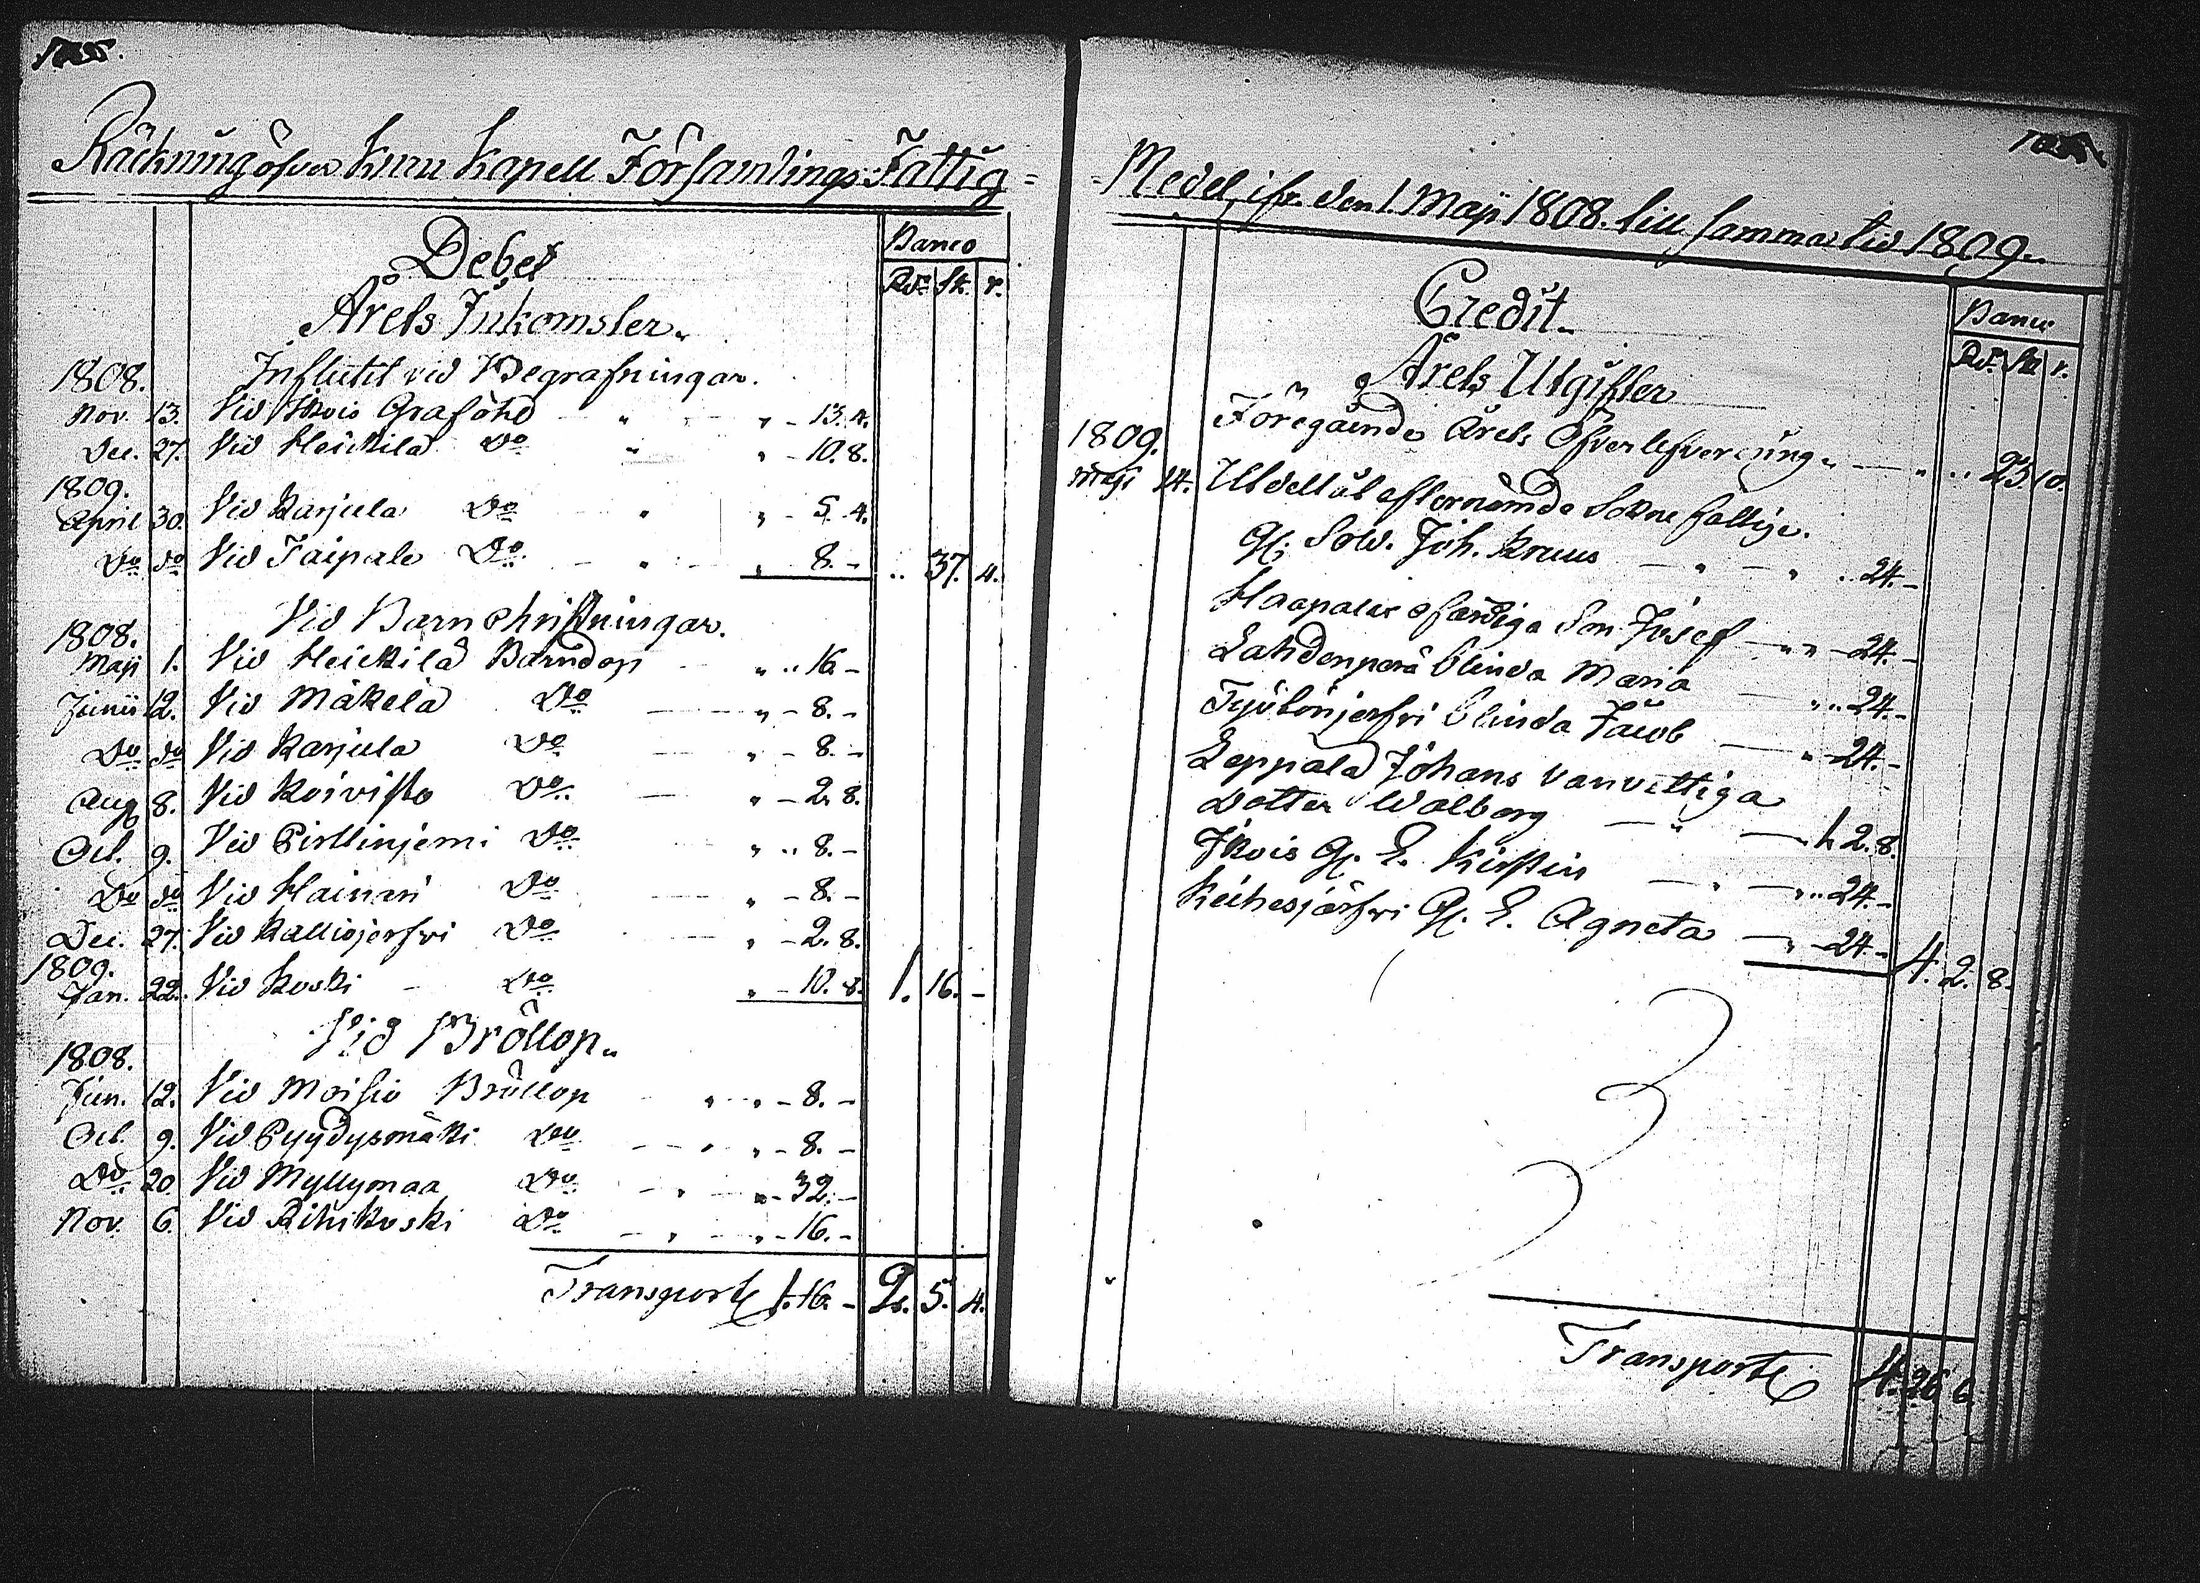 Räckning öfver Kuru Kapell Församlings Fattig=
Debet
Årets Inkomster.
Banco
Rd. sk. r.
1808. Influtit vid Begrafningar.
Nov. 13. Vid Ikois Graföhl " " - 13. 4.
Dec. 27. Vid Heickilä Do " " - 10. 8.
1809.
April 30. Vid Karjula Do " " - 5. 4.
Do do Vid Taipale Do " " 8. - .. 37. 4.
Vid Barn Christningar.
1808.
Maji 1. Vid Heickilä Barndop " .. 16 -
Junii 12. Vid Mäkelä Do " - 8. -
Do do Vid Karjula Do " - 8. -
Aug 8. Vid Koivisto Do " - 2. 8.
Oct. 9. Vid Pirttinjemi Do " .. 8. -
Do do Vid Hainari Do " - 8. -
Dec. 27. Vid Kalliojerfvi Do " - 2. 8.
1809.
Jan. 22. Vid Koski Do " - 10. 8. 1. 16. -
Vid Bröllop.
1808.
Jun. 12. Vid Moisio Bröllop " " - 8. -
Oct. 9. Vid Pyydysmäki Do " " - 8. -
Do 20. Vid Myllymaa Do " " - 32. -
Nov. 6. Vid Rihikoski Do " " - 16. -
Transport 1. 16. - 2. 5. 4.
=Medel, ifr. den 1. Maji 1808. till samma tid 1809.
Credit.
Årets Utgifter
Banco
Rd. sk. r.
Föregående Årets Öfverlefverering. " .. 23. 10.
1809.
Maji 14. Utdelt åt efternämde Sokne fattige.
Gl. Sold. Joh. Kruus " " .. 24. -
Haapalas ofärdiga Son Josef " " - 24. -
Lahdenperä blinda Maria " .. 24. -
Työlönjerfvi blinda Jacob " 24. -
Leppälä Johans vanvettiga
Dotter Walborg " 1. 2. 8.
Ikois Gl. E. Kirstin " " .. 24. -
Keihesjärfvi Gl. E. Agneta " - 24. - 4. 2. 8.
Transport 4. 26. 6.